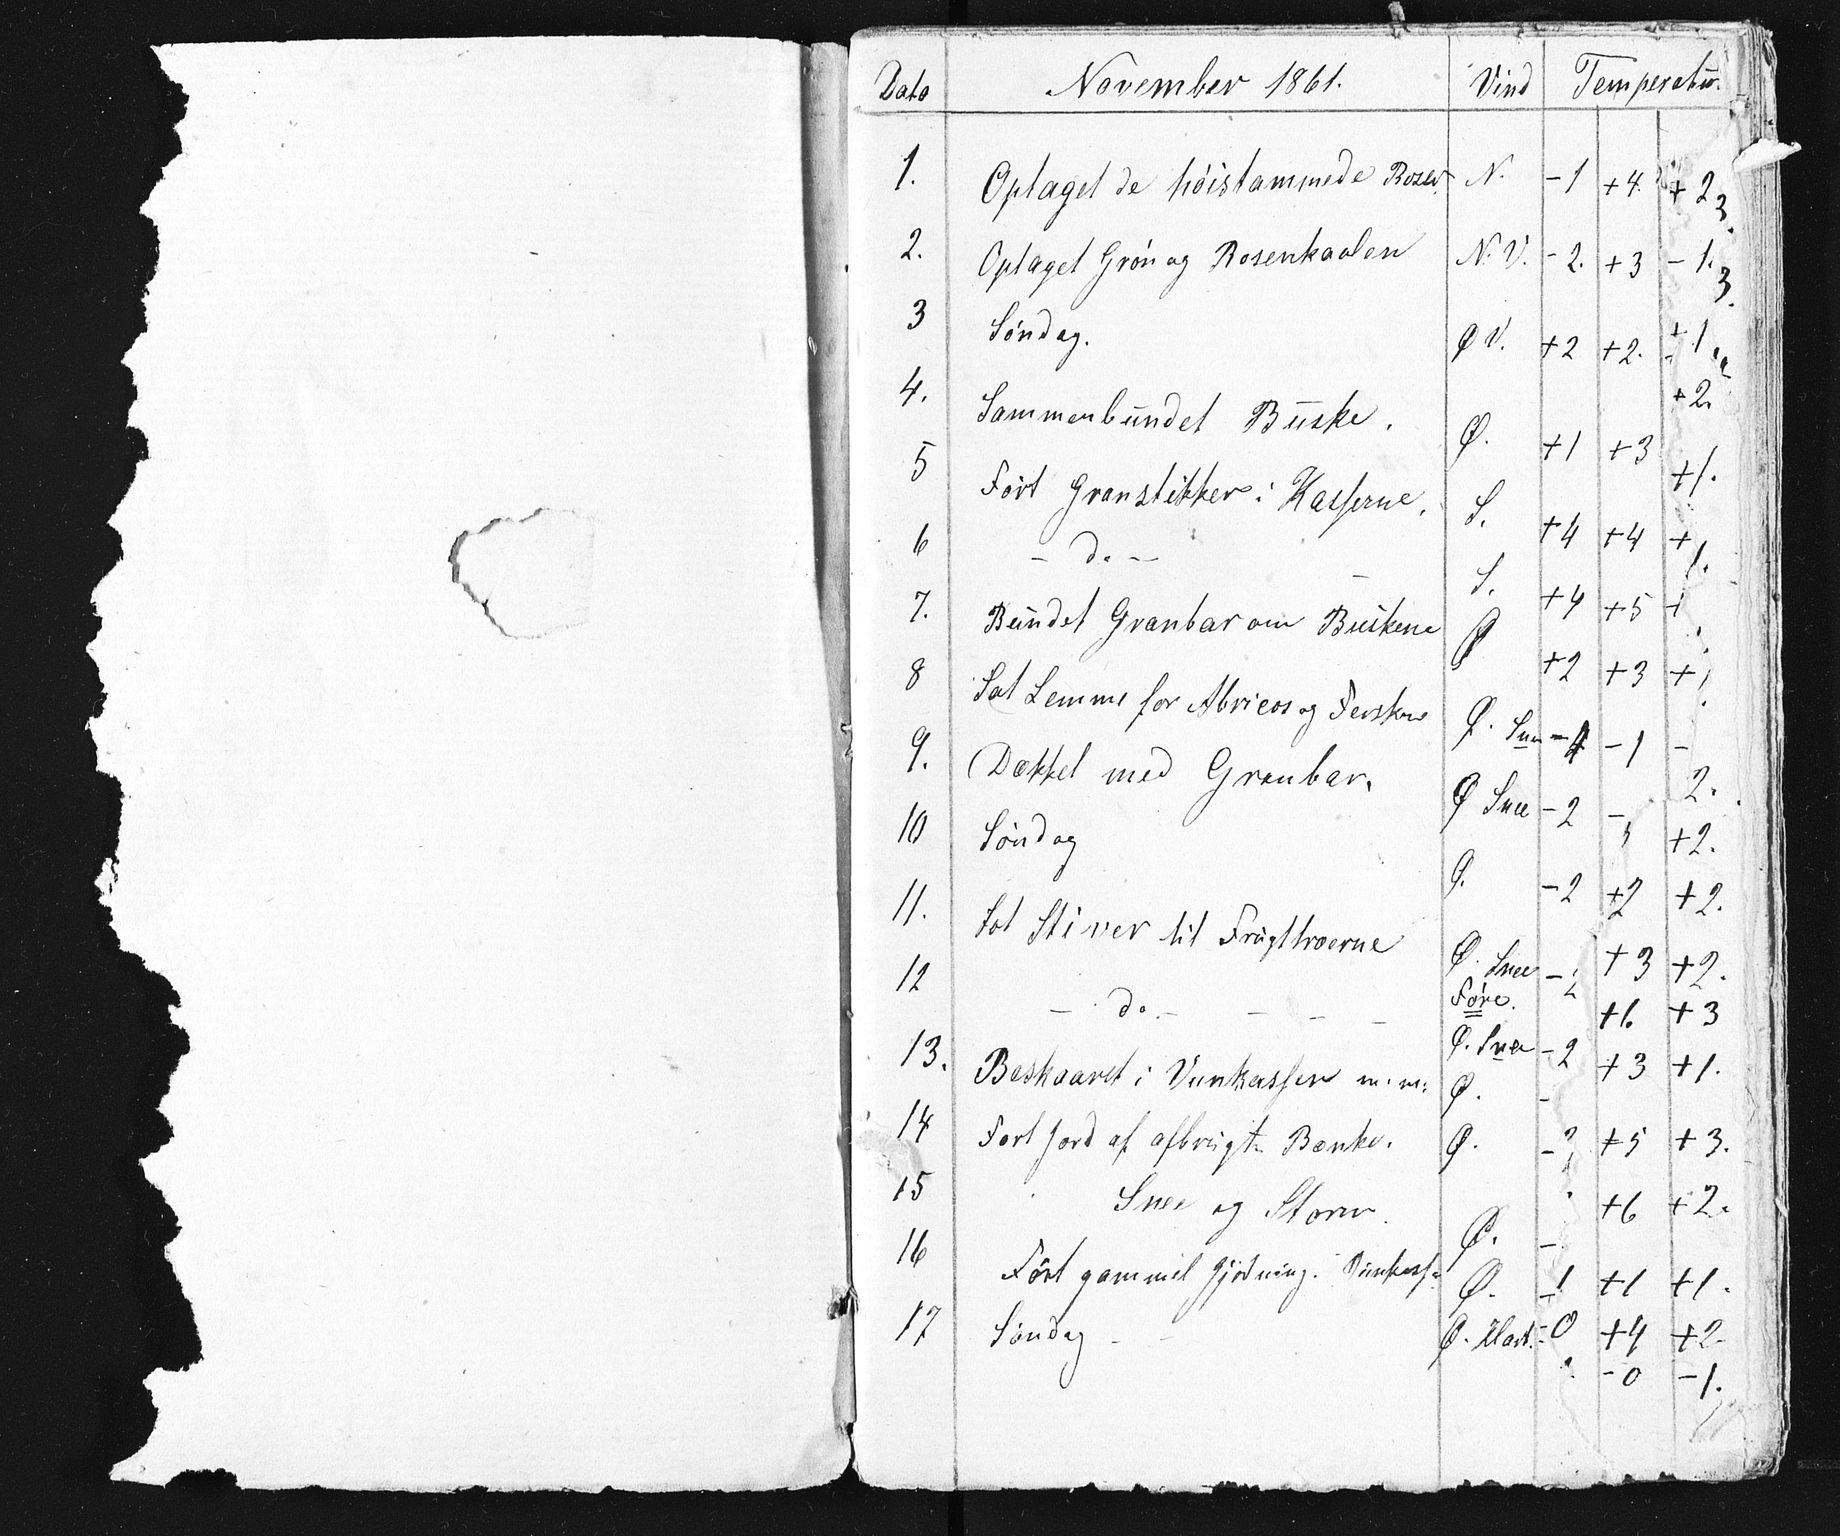 Dato November 1861. Vind Temperatur.
1. Optaget de höistammede Roser. N. -1 +4. +2
2. Optaget Grön og Rosenkaalen N.V. -2. +3 -1.
3 Söndag. Ø V. +2 +2. +1
4. Sammenbundet Buske. Ø. +1 +3 +2.
5 Fört Granstikker i Kasserne. S. +4 +4 +1.
6 - do - - S. +4 +5 +1.
7. Bundet Granbar om Buskene Ø +2 +3 +1
8 Sat Lemme for Abricos og Fersken Ø. Snee -1 -1 -
9. Dækket med Granbar. Ø Snee -2 - 2.
10 Söndag Ø. -2 +2 +2.
11. Sat Stiver til Frugttræerne Ø. Snee +2.
Føre.
12 - do - - - - Ø. Snee -2 +3 +2.
13. Beskaaret i Viinkassen m.m: Ø. - +6 +3
14 Fört Jord af afbrugte Bænke. Ø. +3 +1.
15 Snee og Storm. Ø. +5 +3.
16 Fört gammel Gjödning. Ø. +6 +2.
17 Söndag - Ø. Klart. -0 +1 +1.
+4 +2
-0 -1.